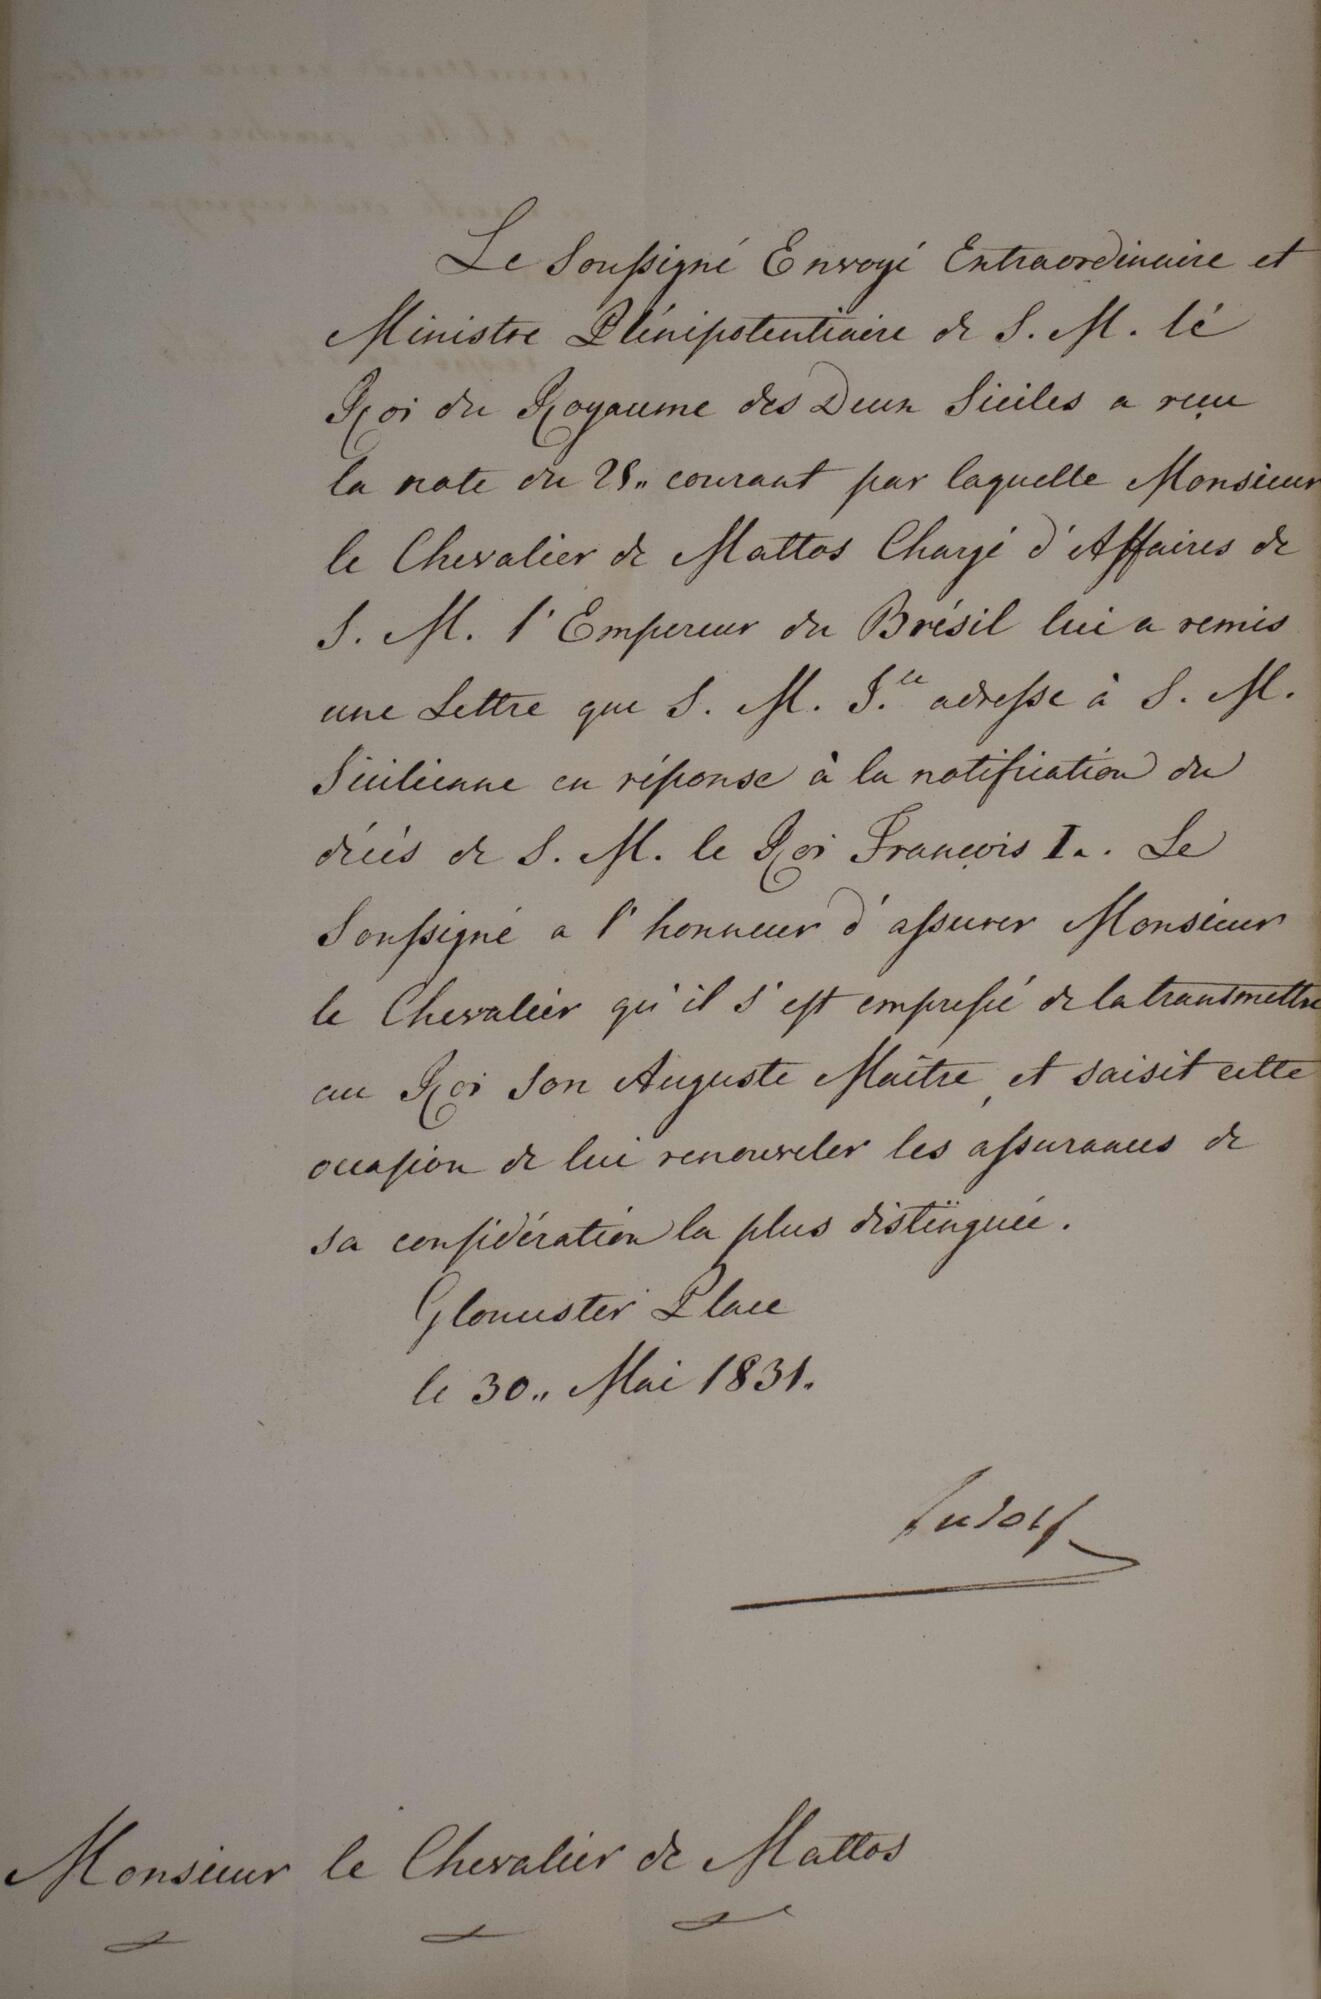 Le Soussigné Envoyé Extraordinaire et
Ministre Plénipotentiaire de S. M. le
Roi du Royaume des Deux Siciles a reçu
la note du 28,, courant par laquelle Monsieur
le Chevalier de Mattos Chargé d'Affaires de
S. M. l'Empereur du Brésil lui a remis
une Lettre que S. M. I.le adresse à S. M.
Sicilienne en réponse à la notification du
décés de S. M. le Roi François I.. Le
Soussigné a l'honneur d'assurer Monsieur
le Chevalier qu'il s'est empressé de la transmettre
au Roi Son Auguste Maître, et saisit cette
occasion de lui renouveler les assurances de
sa considération la plus distinguée.
Gloucester Place
le 30,, Mai 1831.
Ludolf
Monsieur le Chevalier de Mattos